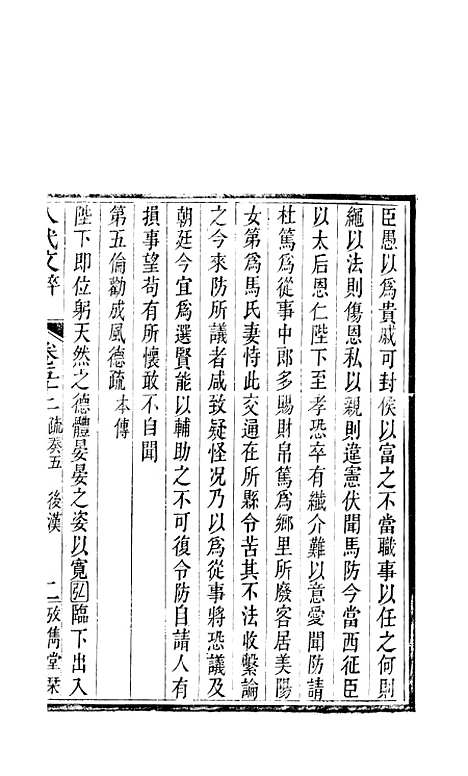 臣愚以爲貴戚可封侯以富之不當職事以任之何則
繩以法則傷恩私以親則違憲伏聞馬防今當西征臣
以太后恩仁陛下至孝恐卒有纎介難以意愛聞防請
杜篤爲從事中郎多賜財帛篤爲鄉里所廢客居美陽
女第爲馬氏妻恃此交通在所縣令苦其不法收繫論
之今來防所議者咸致疑怪况乃以爲從事將恐議及
朝廷今宜爲選賢能以輔助之不可復令防自請人有
損事望苟有所懷敢不自聞
第五倫勸成風德疏 本傳
陛下即位躬天然之德體晏晏之姿以寬弘臨下出入
八代文粹 卷 二疏奏五 後漢 二 攷雋堂栞